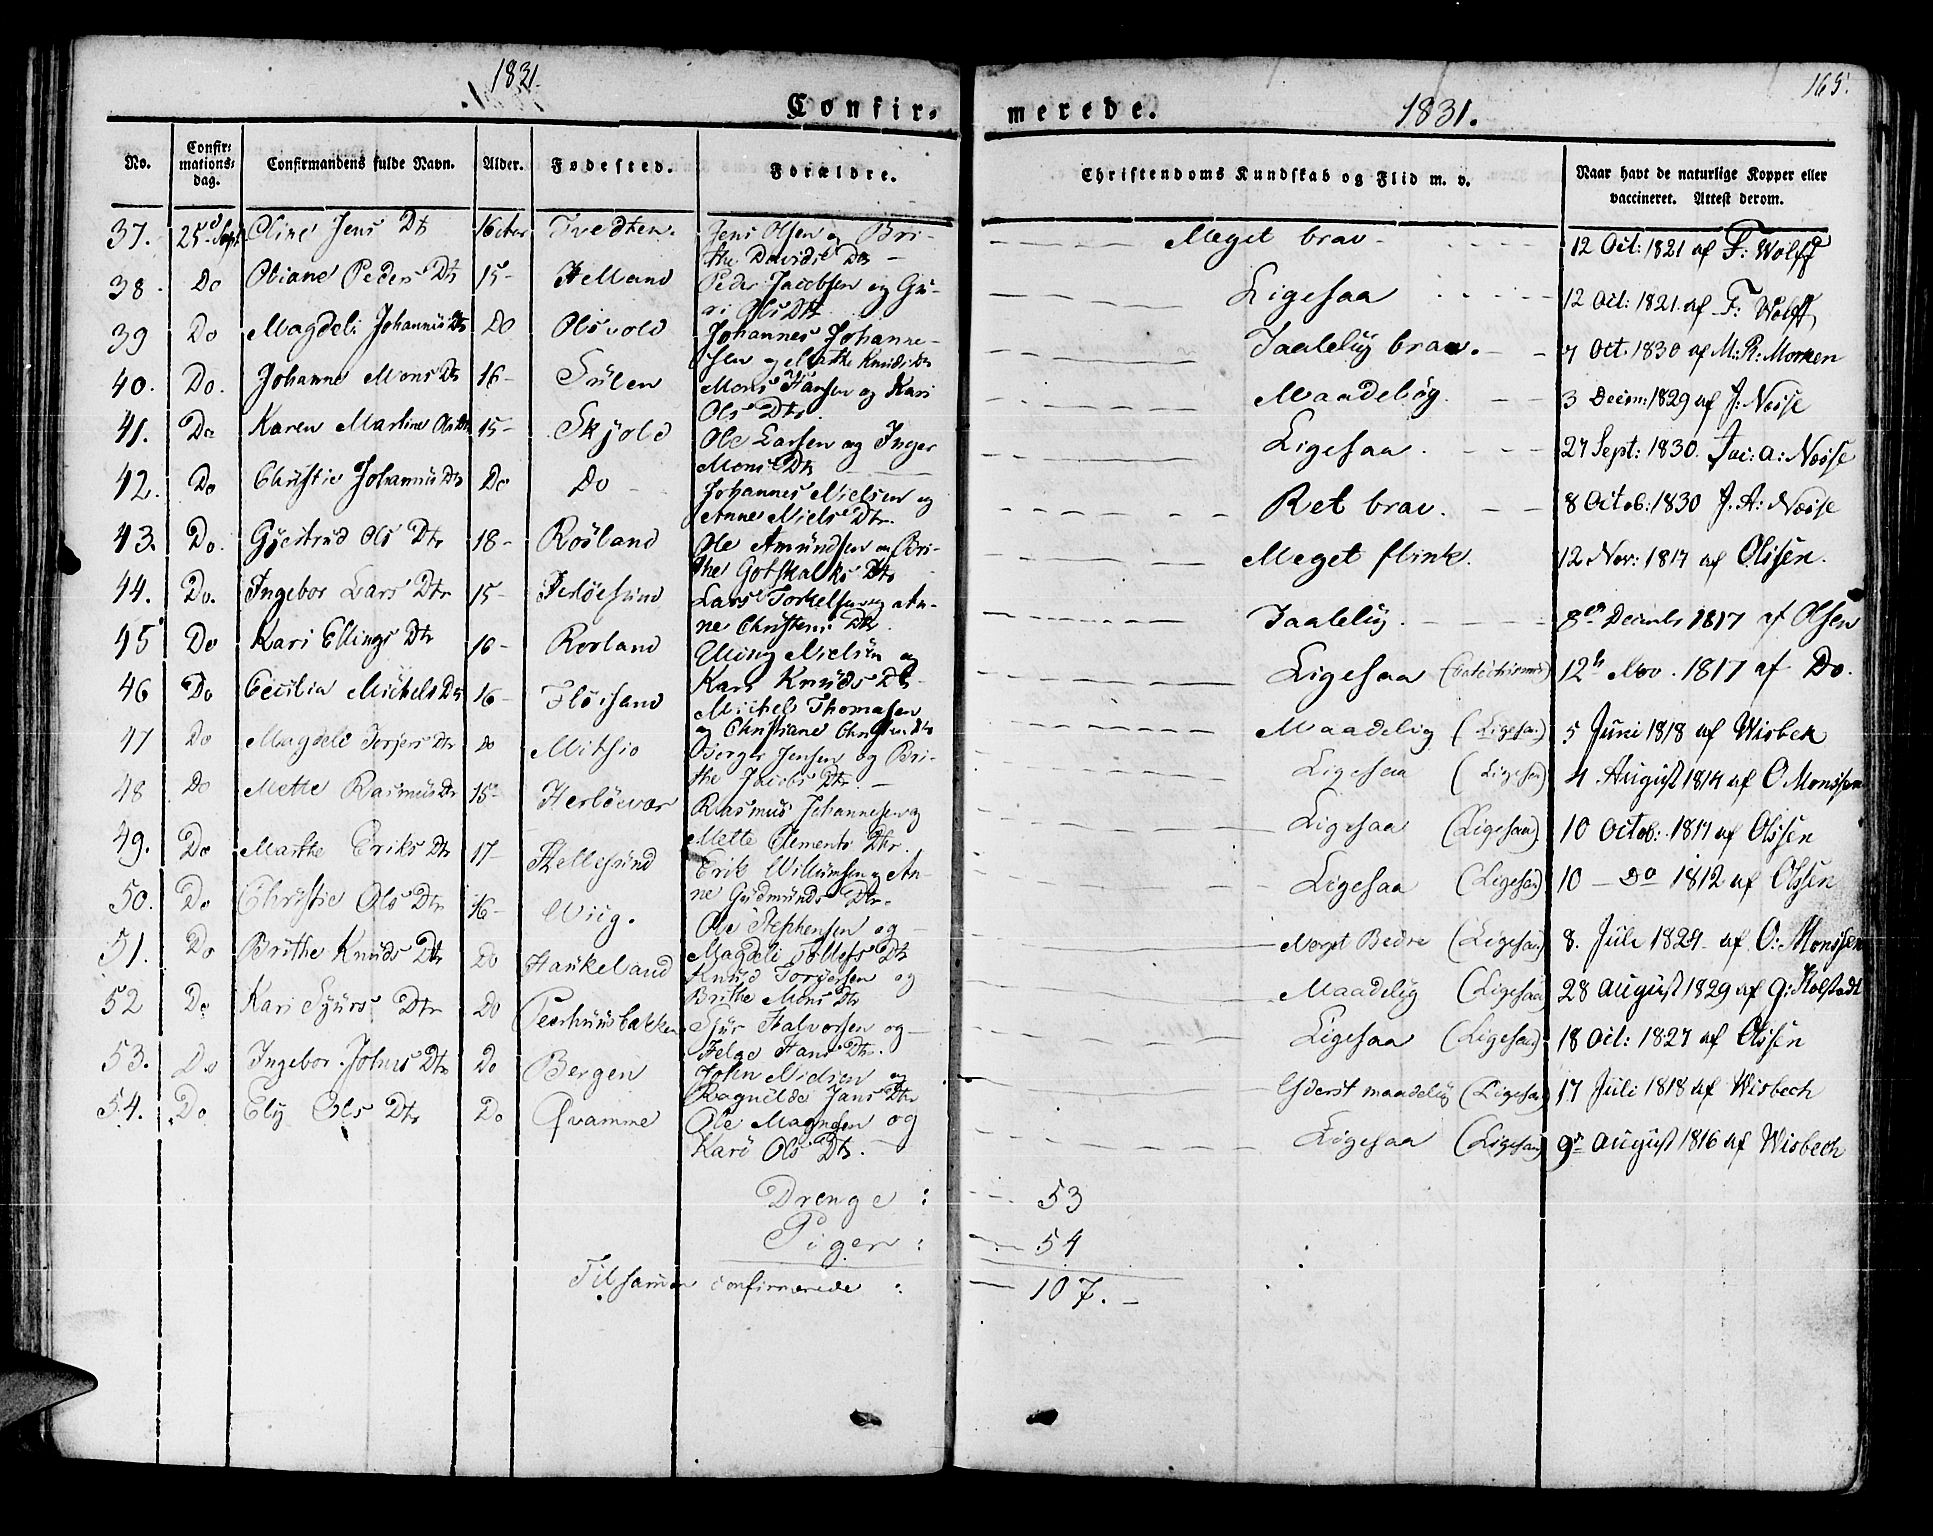 1831.
165.
Confir-
merede.
1831.
No. Confir-mations-dag. Confirmandens fulde Navn. Alder. Fødested. Forældre. Christendoms Kundskab og Flid m. v. Naar havt de naturlige Kopper eller vaccineret. Attest derom.
37. 25d Sept. Oline Jens Dtr 16 Aar Tvedten. Jens Olsen og Bri- Meget brav 12 Oct: 1821 af F: Wolff
the Davids Dtr
38. Do Oliane Peders Dtr 15- Helland Peder Jacobsen og Gu- Ligesaa 12 Oct: 1821 af F: Wolff
ri Ols Dtr
39 Do Magdeli Johannis Dtr Do Olsvold Johannes Johanne- Taalelig brav. 7 Oct. 1830 af M: R: Morken
sen og Marthe Knuds Dtr
40. Do. Johanne Mons Dtr 16- Sulen Mons Hansen og Kari Maadelig. 3 Decem: 1829 af J: Neise
Ols Dtr.
41. Do Karen Martine Ols Dtr 15- Skjold Ole Larsen og Inger Ligesaa. 27 Sept: 1830. Jac: A: Neise
Mons Dtr
42. Do Christie Johannis Dtr Do Do Johannes Nielsen og Ret brav. 8 Octob: 1830 J. A: Neise
Anne Niels Dtr.
43. Do. Gjertrud Ols Dtr 18- Rosland Ole Amundsen og Bri- Meget flink. 12 Nov: 1817 af Olssen.
the Gotskalks Dtr
44. Do. Ingebor Lars Dtr 15- Herløesund Lars Torkelsen og An- Taalelig. 8de Decemb 1817 af Olsen
ne Christens Dtr.
45 Do Kari Ellings Dtr 16- Rosland Elling Nielsen og Ligesaa 12te Nov. 1817 af Do.
Kari Knuds Dtr
46 Do Cecilia Michels Dtr 16- Fløisand Michel Thomasen Maadelig (Ligesaa) 5 Juni 1818 af Wisbek
og Christiane Christens Dtr
47 Do Magdeli Børjes Dtr Do Mitsio Børge Jensen og Bri- Ligesaa (Ligesaa) 4 August 1814 af O Monssen
the Jacobs Dtr.
48 Do Mette Rasmus Dtr 15- Herløevær Rasmus Johannesen og Ligesaa (Ligesaa) 10 Octob: 1817 af Olssen
Mette Clements Dtr.
49. Do Marthe Eriks Dtr 17- Hellesund Erik Willumsen og An- Ligesaa (Ligesaa) 10 Do 1812 af Olssen
ne Gudmunds Dtr.
50. Do Christie Ols Dtr 16- Wiig. Ole Stephensen og Noget Bedre (Ligesaa) 8. Juli 1824 af O: Monssen
Magdeli Tollefs Dtr
51. Do Brithe Knuds Dtr Do Haukeland Knud Torgersen og Maadelig (Ligesaa) 28 August 1829 af G: Kolstadt
Brithe Mons Dtr
52 Do Kari Sjurs Dtr Do Peerhuusbakken Sjur Halvorsen og Ligesaa (Ligesaa) 18 Oct: 1827 af Olssen
Helge Hans Dtr.
53. Do Ingebor Johns Dtr Do Bergen John Nielsen og Yderst maadelig (Ligesaa) 17 Juli 1818 af Wisbech
Ragnilde Jans Dtr
54. Do Elij Ols Dtr Do Qvamme Ole Magnesen og Ligesaa (Ligesaa) 9de August 1816 af Wisbech
Kari Ols Dtr.
Drenge : 53
Piger : 54
Tilsamen confirmerede : 107.